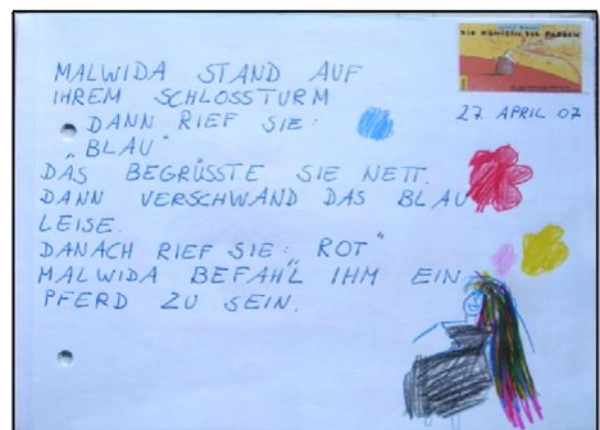 DIE KÖNIGIN DER FARBEN
27. APRIL 07
MALWIDA STAND AUF
IHREM SCHLOSSTURM
DANN RIEF SIE:
„BLAU"
DAS BEGRÜSSTE SIE NETT.
DANN VERSCHWAND DAS BLAU
LEISE.
DANACH RIEF SIE: „ROT"
MALWIDA BEFAHL IHM EIN
PFERD ZU SEIN.